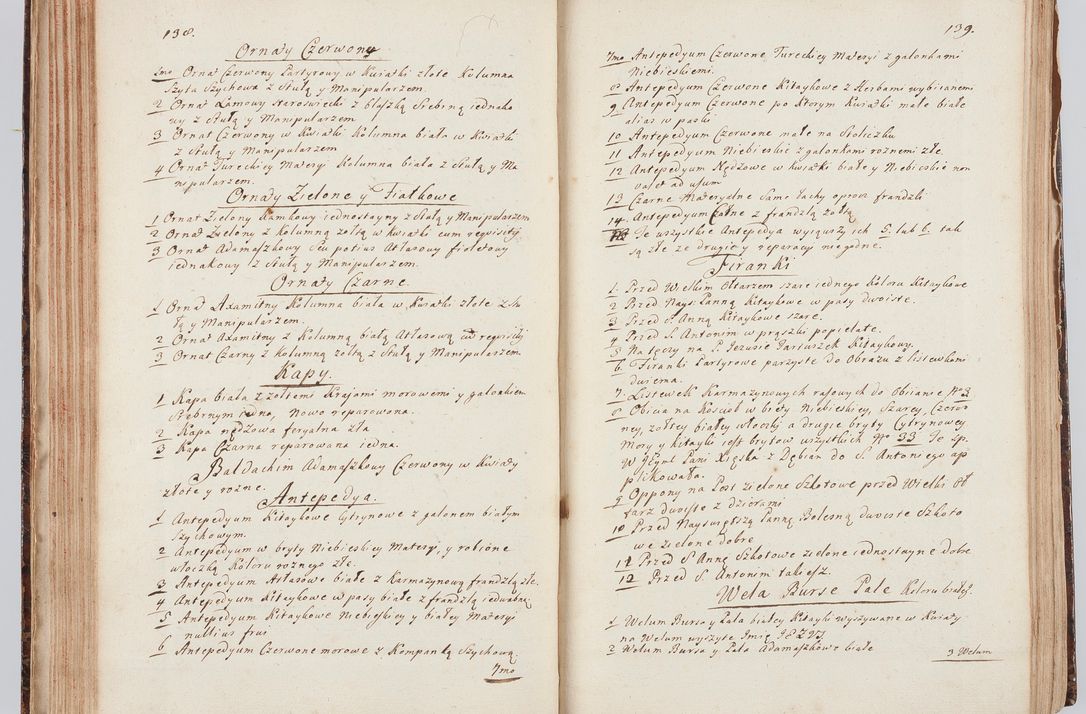 138.
Ornaty Czerwony
1mo Ornat Czerwony Partyrowy w Kwiatki złote Kolumna
Szyta Szychowa z Stułą y Manipularzem.
2 Ornat Lamowy staroswiecki z blaszką Srebrną iednako
wy z Stułą y Manipularzem
3 Ornat Czerwony w Kwiatki Kolumna biała w Kwiatki
z Stułą y Manipularzem
4 Ornat Tureckiey Materyi Kolumna biała z Stułą y Ma
nipularzem.
Ornaty Zielone y Fiałkowe
1 Ornat Zielony Axamitowy iednostayny z Stułą y Manipularzem
2 Ornat Zielony z Kolumną zołtą w kwiatki cum requisitis
3 Ornat Adamaszkowy Seu potius Atlasowy fioletowy
iednakowy z Stułą y Manipularzem.
Ornaty Czarne.
1 Ornat Axamitny Kolumna biała w Kwiatki złote z Stu
łą y Manipularzem.
2 Ornat Axamitny z Kolumną białą Atlasową requisitis
3 Ornat Czarny z Kolumną zołtą z Stułą y Manipularzem
Kapy.
1 Kapa biała z zołtemi Kraiami morowemi y galonkiem
Srebrnym iedna, Nowo reparowana.
2 Kapa nędzowa feryalna zła
3 Kapa Czarna reparowana iedna.
Baldachim Adamaszkowy Czerwony w Kwiaty
złote y rozne.
Antepedya.
1 Antepedyum Kitaykowe Cytrynowe z galonem białym
Szychowym.
2 Antepedyum w bryty Niebieskiey Matery, y robione
włoczką Koloru roznego złe.
3 Antepedyum Atłasowe białe z Karmazynową frandzlą złe.
4 Antepedyum Kitaykowe w pasy białe z frandzlą iedwabną
5 Antepedyum Kitaykowe Niebieskiey y białey Materyi
nullius frus
6 Antepedyum Czerwone morowe z Kompanką Szychową
7mo
139.
7mo Antepedyum Czerwone Tureckiey Materyi z galonkami
Niebieskiemi.
8 Antepedyum Czerwone Kitaykowe z Herbami wybiianemi
9 Antepedyum Czerwone po Ktorym Kwiatki małe białe
alias w paski
10 Antepedyum Czerwone małe na Stoliczku
11 Antepedyum Niebieskie z galonkami roznemi złe.
12 Antepedyum Nędzowe w kwiatki białe y Niebieskie non
valet ad usum
13 Czarne Materyalne Same łachy oprocz frandzli
14 Antepedyum z frandzlą zołtą
Te wszystkie Antepedya wyiąwszy ich 5. lub 6. tak
są złe ze drugie y reparacyi niegodne.
Firanki
1. Przed Wielkim Ołtarzem szare iednego Koloru Kitaykowe
2 Przed Nays: Panną Kitaykowe w pasy dwoiste.
3 Przed S. Anną Kitaykowe szare.
4 Przed S. Antonim w prąszki popielate.
5 Na tęczy na P. Jezusie Fartuszek Kitaykowy.
6. Firanki Partyrowe parzyste do Obrazu z listewkami
dwiema.
7. Listewek Karmazynowych rasowych do Obicia No 3
8 Obicia na Kościoł w bryty Niebieskiey, Szarey, Czerwo
ney, zołtey białey włoczki a drugie bryty Cytrynowey
Mory y Kitayki iest brytow wszystkich No 33 Te Jp.
W Pani Xięska z Dębian do S. Antoniego ap
plikowała.
9 Oppony na Post zielone Szkotowe przed Wielki Oł
tarz dwoiste z dziorami
10 Przed Nayswiętszą Panną Bolesną dwoiste Szkoto
we zielone dobre
11 Przed S. Anną Szkotowe zielone iednostayne dobre
12 Przed S. Antonim takież.
Wela Burse Pale Koloru białeg:
1 Welum Bursa y Pala białey Kitayki wyszywane w Kwiaty
na Welum wyszyte Jmię JEZUS
2 Welum Bursa y Pala Adamaszkowe białe
3 Welum